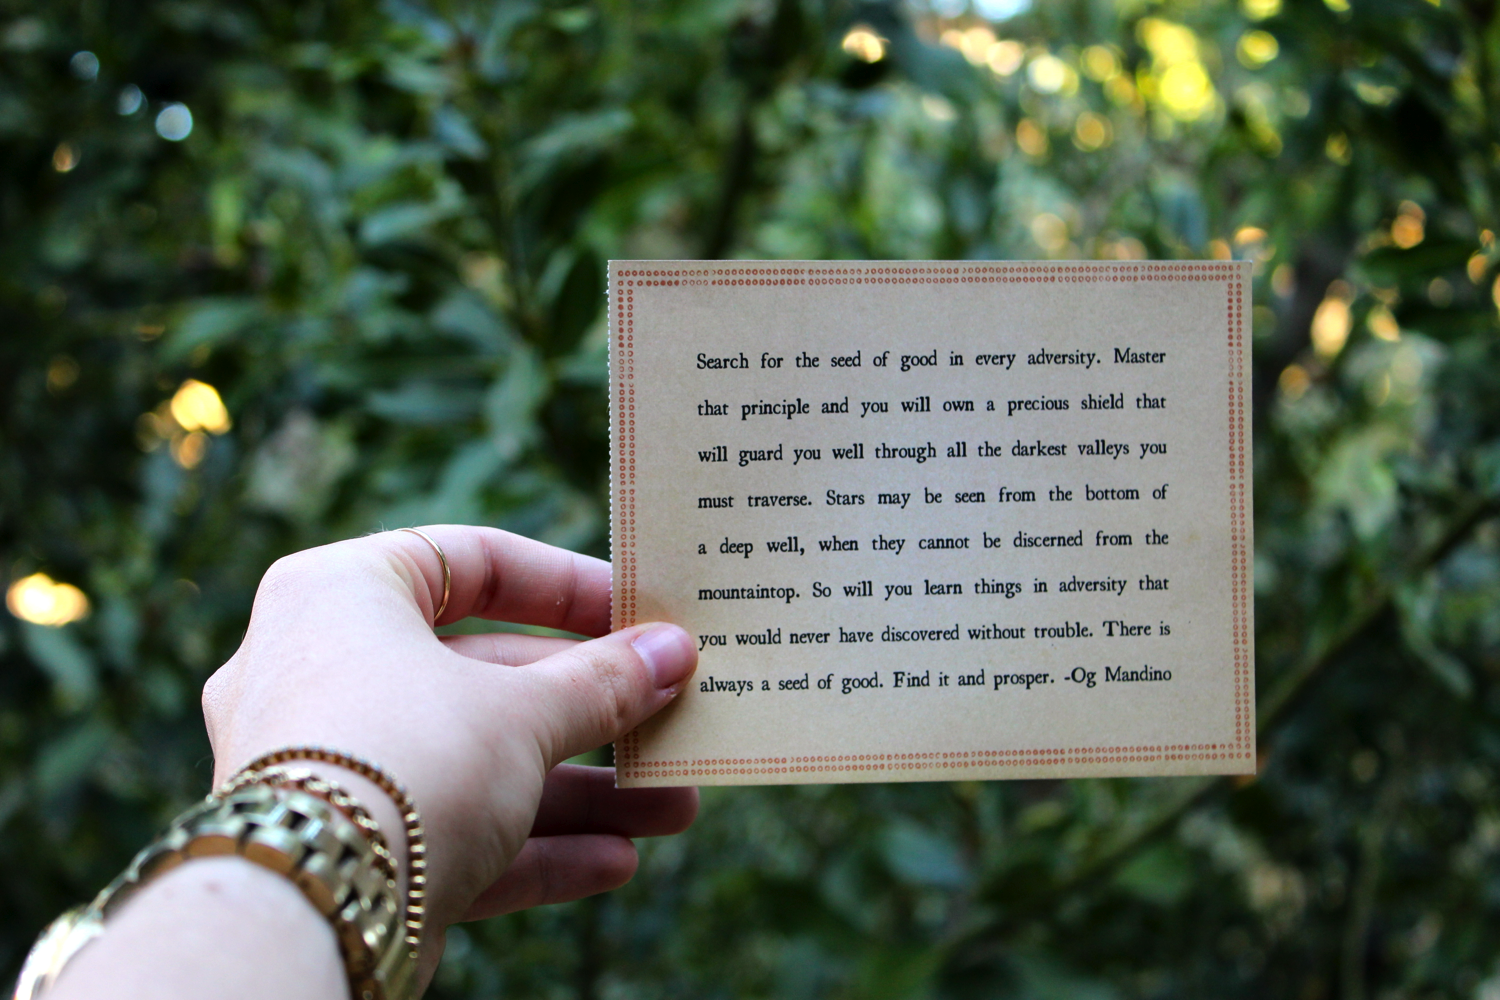 Search for the seed of good in every adversity. Master
that principle and you will own a precious shield that
will guard you well through all the darkest valleys you
must traverse. Stars may be seen from the bottom of
a deep well, when they cannot be discerned from the
mountaintop. So will you learn things in adversity that
you would never have discovered without trouble. There is
always a seed of good. Find it and prosper. -Og Mandino